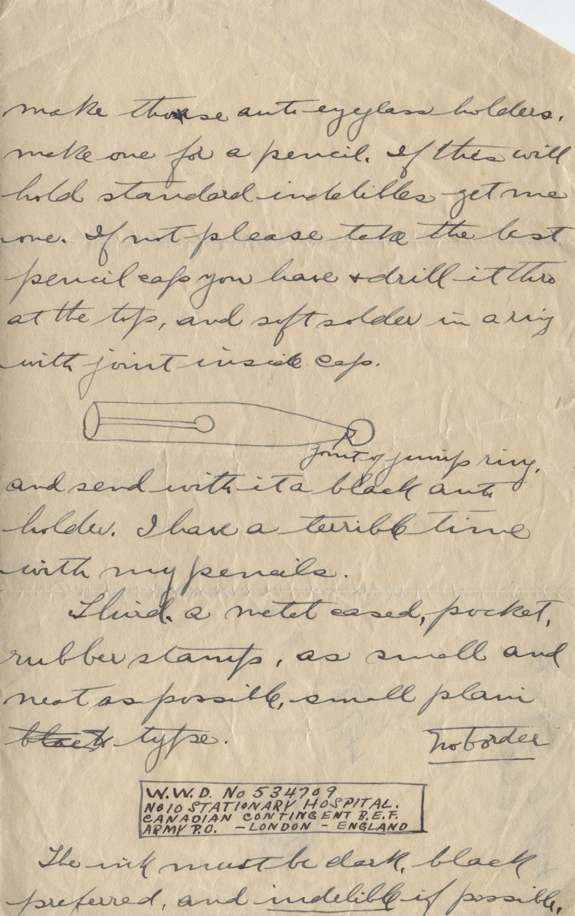 make those auto eyeglass holders.
make one for a pencil. If this will
hold standard indelibles get me
one. If not please take the best
pencil cap you have & drill it thro
at the top, and soft solder in a ring
with joint inside cap.
joint of jump ring.
and send with it a black auto
holder. I have a terrible time
with my pencils.
Third. a metel cased, pocket,
rubber stamp, as small and
neat as possible, small plain
block type. No border
W.W.D. No 534709
NO 10 STATIONARY HOSPITAL.
CANADIAN CONTINGENT B.E.F.
ARMY P.O. - LONDON - ENGLAND
The ink must be dark, black
preferred, and indelible if possible.